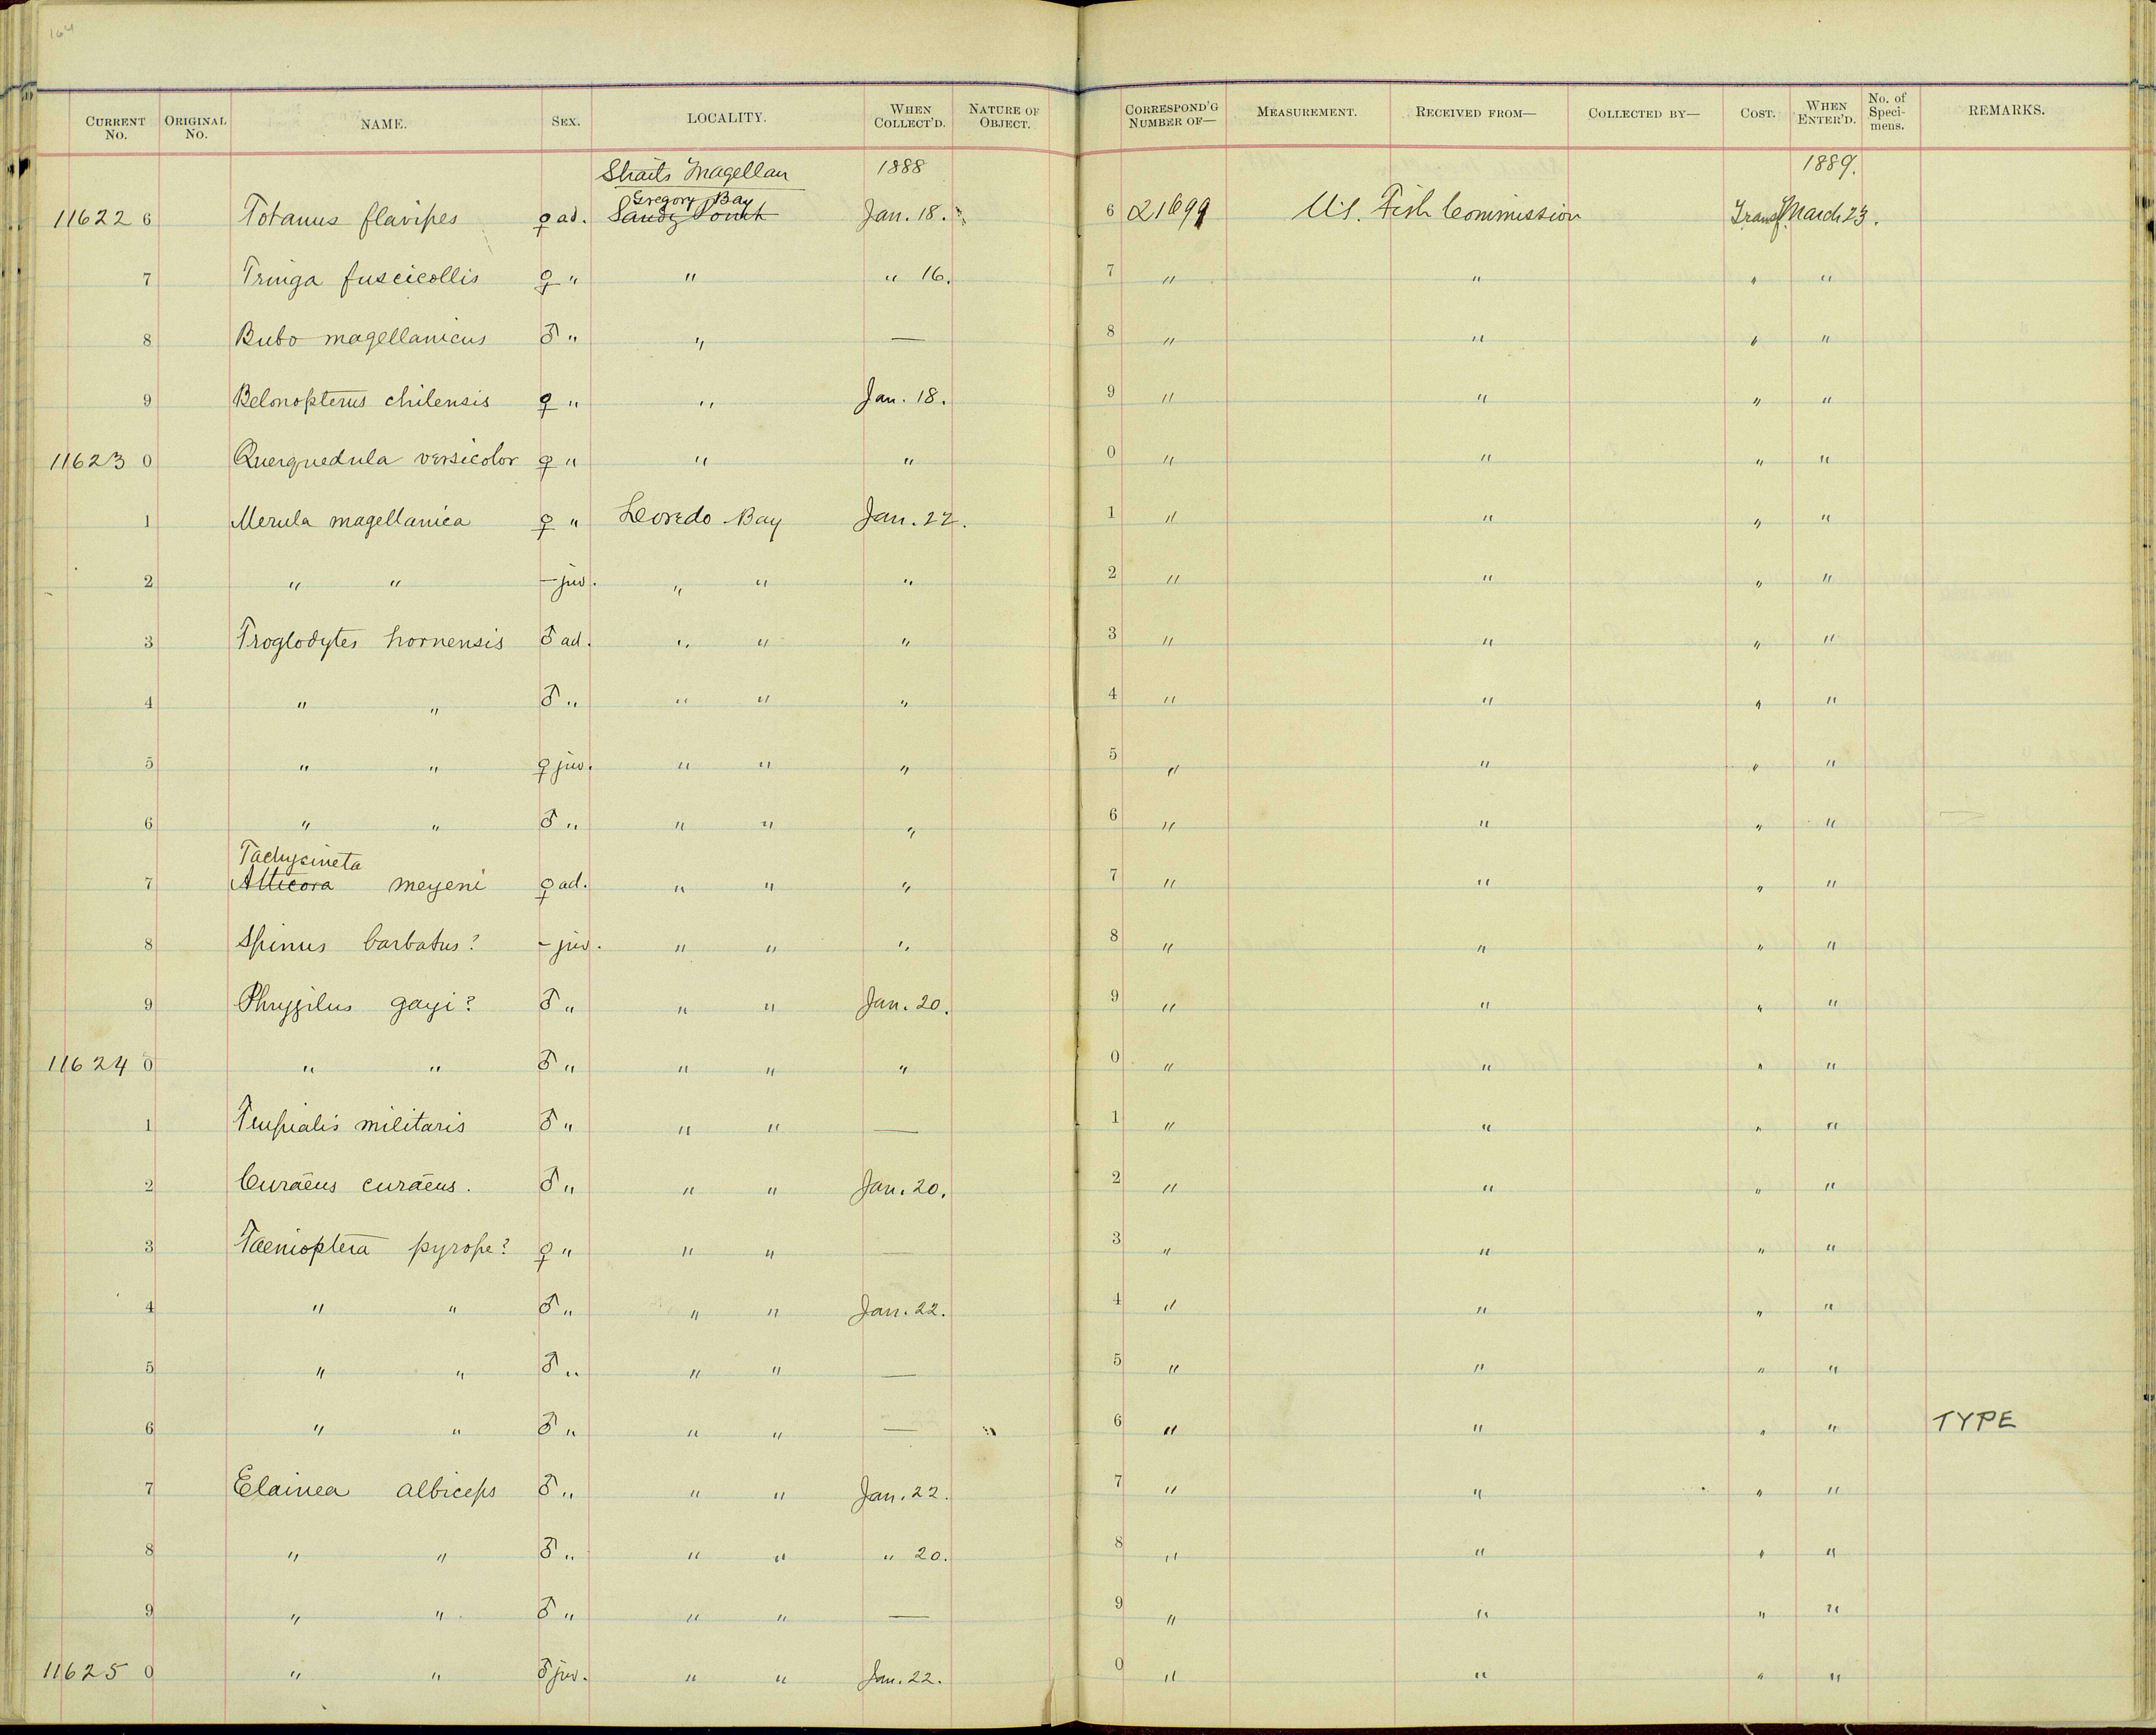 164
CURRENT No. ORIGINAL No. NAME. SEX. LOCALITY. WHEN COLLECT'D. NATURE OF OBJECT. CORRESPOND'G NUMBER OF— MEASUREMENT. RECEIVED FROM— COLLECTED BY— COST. WHEN ENTER'D. No. of Speci-mens. REMARKS.
Straits Magellan 1888 1889.
Gregory Bay
11622 6 Totanus flavipes ♀ ad. Sandy Point Jan. 18. 6 21699 U.S. Fish Commission Transf. March 23.
7 Tringa fuscicollis ♀ " " " 16. 7 " " " "
8 Bubo magellanicus ♂ " " — 8 " " " "
9 Belonopterus chilensis ♀ " " Jan. 18. 9 " " " "
11623 0 Querquedula versicolor ♀ " " " 0 " " " "
1 Merula magellanica ♀ " Loredo Bay Jan. 22. 1 " " " "
2 " " — juv. " " " 2 " " " "
3 Troglodytes hornensis ♂ ad. " " " 3 " " " "
4 " " ♂ " " " " 4 " " " "
5 " " ♀ juv. " " " 5 " " " "
6 " " ♂ " " " " 6 " " " "
Tachycineta
7 Atticora meyeni ♀ ad. " " " 7 " " " "
8 Spinus barbatus? – juv. " " " 8 " " " "
9 Phrygilus gayi? ♂ " " " Jan. 20. 9 " " " "
11624 0 " " ♂ " " " " 0 " " " "
1 Trupialis militaris ♂ " " " — 1 " " " "
2 Curaeus curaeus. ♂ " " " Jan. 20. 2 " " " "
3 Taenioptera pyrope? ♀ " " " — 3 " " " "
4 " " ♂ " " " Jan. 22. 4 " " " "
5 " " ♂ " " " — 5 " " " "
6 " " ♂ " " " — 6 " " " " TYPE
7 Elainea albiceps ♂ " " " Jan. 22. 7 " " " "
8 " " ♂ " " " " 20. 8 " " " "
9 " " ♂ " " " — 9 " " " "
11625 0 " " ♂ juv. " " Jan. 22. 0 " " " "